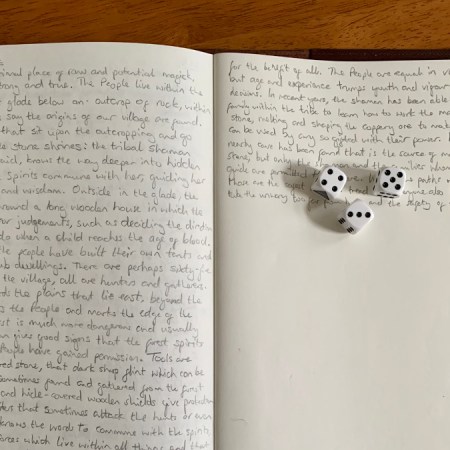 place of and potential magick,
strong and true. The People live within the
glade below an outcrop of rocks, within
, say the origins of our village are found.
that sit upon the outcropping and go
stone shrines: the tribal shaman
said, knows the way deeper into hidden
spirits commune with her, guiding her
and wisdom. Outside in the glade, the
a long wooden house in which the
or judgements, such as deciding the
do when a child reaches the age of blood.
the people have built their own tents and
dwellings. There are perhaps sixty-five
the village, all are hunters and gatherers.
the plains that lie east, beyond the
the People and marks the edge of the
is much more dangerous and usually
gives good signs that the forest spirits
People have gained permission. Tools are
stone, that dark sharp flint which can be
sometimes found and gathered from the forest
and hide-covered wooden shields give protection
that sometimes attack the hunts or even
knows the words to commune with the spirits,
which live within all things and that
for the benefit of all. The People are equal in
but age and experience trumps youth and vigour
decisions. In recent years, the shaman has been able
family within the tribe to learn how to work the
stone, melting and shaping the coppery ore to
can be used by any so gifted with their power.
nearby cave has been found that is the source of
stone, but only the
guide are permitted paths
These are the
take the unwary and the safety of